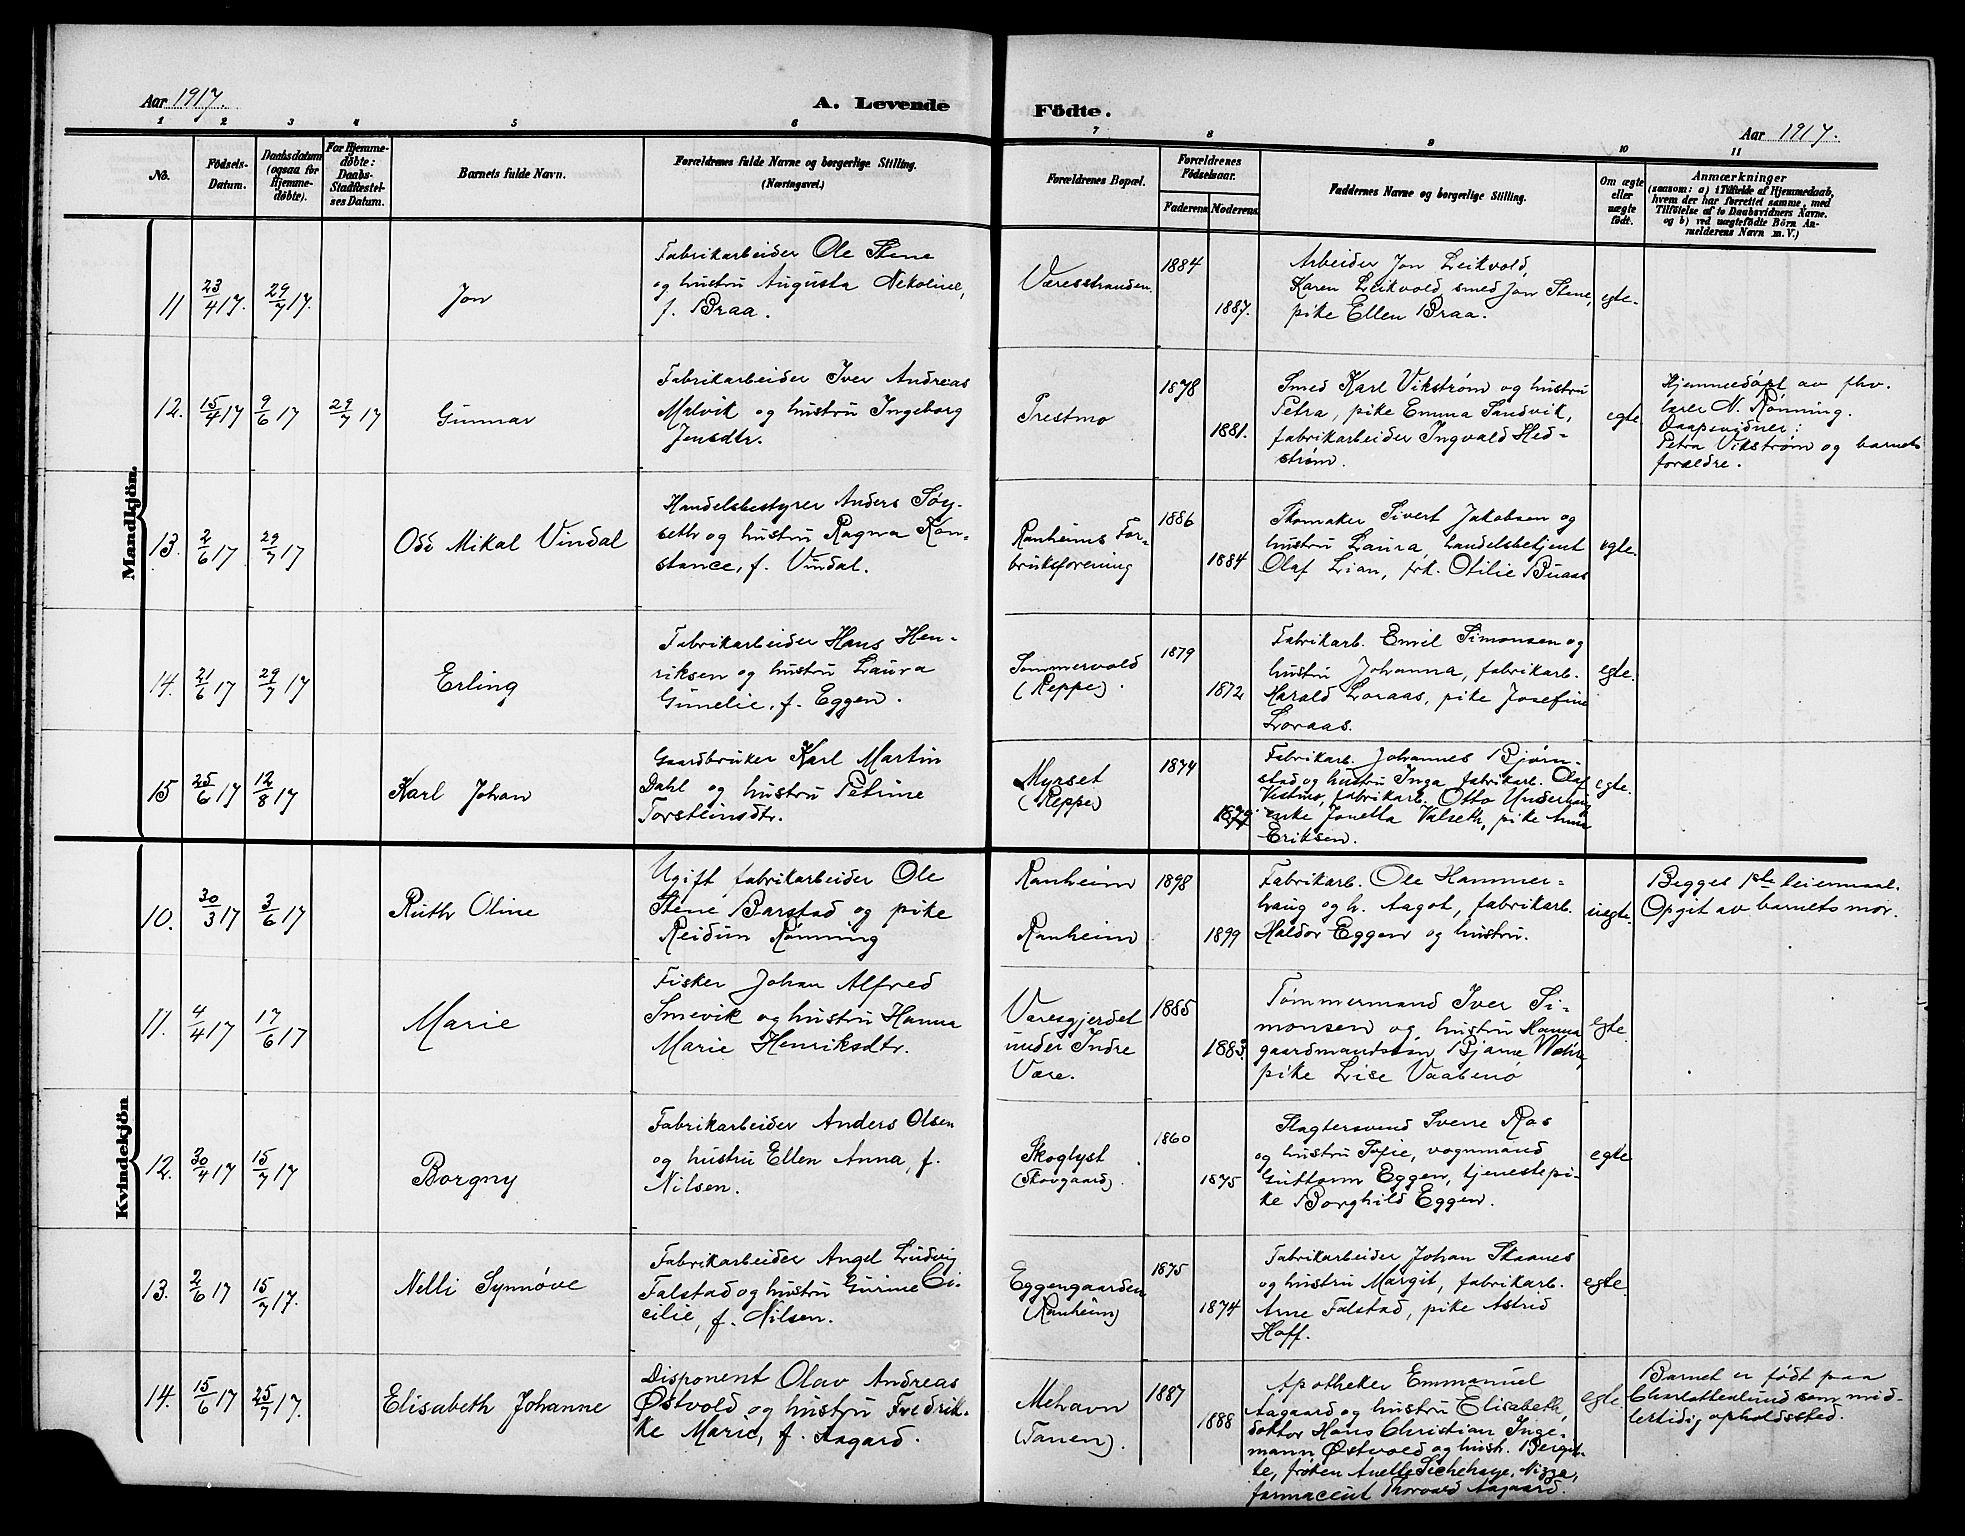 Aar 1917. A. Levende Födte. Aar 1917.
1 2 3 4 5 6 7 8 9 10 11
No.
Födsels-
Datum.
Daabsdatum
(ogsaa for
Hjemme-
døbte).
For Hjemme-
døbte:
Daabs-
Stadfæstel-
ses Datum.
Barnets fulde Navn.
Forældrenes fulde Navne og borgerlige Stilling.
(Næringsvei.)
Forældrenes Bopæl.
Forældrenes
Fødselsaar.
Faderens. Moderens.
Faddernes Navne og borgerlige Stilling.
Om ægte
eller
uægte
født.
Anmærkninger
(saasom: a) i Tilfælde af Hjemmedaab,
hvem der har forrettet samme, med
Tilføielse af to Daabsvidners Navne.
og b) ved uægtefødte Börn An-
melderens Navn m. V.)
Mandkjön.
11 23/4 17. 29/7 17.
Jon
Fabrikarbeider Ole Stene
og hustru Augusta Nekoline,
f. Braa.
Væresstranden.
1884
1887.
Arbeider Jon Leikvold,
Karen Leikvold, smed Jon Stene,
pike Ellen Braa.
egte.
12. 15/4 17 9/6 17 29/7 17
Gunnar
Fabrikarbeider Iver Andreas
Malvik og hustru Ingeborg
Jensdtr.
Prestmo
1878
1881.
Smed Karl Vikstrøm og hustru
Petra, pike Emma Sandvik,
fabrikarbeider Ingvald Hed-
strøm.
egte.
Hjemmedøpt av fhv.
lærer N. Rønning.
Daapsvidner:
Petra Vikstrøm og barnets
forældre.
13. 2/6 17 29/7 17
Odd Mikal Vindal
Handelsbestyrer Anders Søy-
seth og hustru Ragna Kon-
stance, f. Vindal.
Ranheims For-
bruksforening
1886
1884
Skomaker Sivert Jakobsen og
hustru Laura, handelsbetjent
Olaf Lian, frk. Otilie Buaas
egte.
14. 21/6 17 29/7 17
Erling
Fabrikarbeider Hans Hen-
riksen og hustru Laura
Gunelie, f. Eggen.
Sommervold
(Reppe).
1879
1872
Fabrikarb. Emil Simonsen og
hustru Johanna, fabrikarb.
Harald Loraas, pike Josefine
Loraas.
egte.
15 25/6 17 12/8 17
Karl Johan
Gaardbruker Karl Martin
Dahl og hustru Petrine
Torsteinsdtr.
Myrset
(Reppe)
1874
Fabrikarb. Johannes Bjørn-
stad og hustru Inga, fabrikarb. Olaf
Vestmo, fabrikarb. Otto Underhaug
enke Jonetta Valseth, pike Anna
Eriksen.
egte.
Kvindekjön
10. 30/3 17 3/6 17
Ruth Oline
Ugift fabrikarbeider Ole
Stene Barstad og pike
Reidun Rønning
Ranheim
Ranheim
1898
1899
Fabrikarb. Ole Hammer-
haug og h. Aagot, fabrikarb.
Haldor Eggen og hustru.
uegte.
Begges 1ste leiermaal.
Opgit av barnets mor.
11. 4/4 17 17/6 17
Marie
Fisker Johan Alfred
Smevik og hustru Hanna
Marie Henriksdtr.
Væresgjerdet
under Indre
Være.
1885
1883.
Tømmermand Iver Si-
monsen og hustru Hanna
gaardmandssøn Bjarne Være,
pike Lise Vaabenø
egte
12. 30/4 17 15/7 17
Borgny
Fabrikarbeider Anders Olsen
og hustru Ellen Anna, f.
Nilsen.
Skoglyst
(Skovgaard).
1860
1875
Slagtersvend Sverre Ros
og hustru Sofie, vognmand
Guttorm Eggen, tjenestepi-
ke Borghild Eggen.
egte
13. 2/6 17 15/7 17.
Nelli Synnøve
Fabrikarbeider Angel Ludvig
Falstad og hustru Gurine Ci-
cilie, f. Nilsen.
Eggengaarden
(Ranheim)
1875
1874
Fabrikarbeider Johan Skaanes
og hustru Margit, fabrikarb.
Arne Falstad, pike Astrid
Hoff.
egte.
14. 15/6 17 25/7 17.
Elisabeth Johanne
Disponent Olav Andreas
Østvold og hustru Fredrik-
ke Marie, f. Aagard.
Mehavn
(Tanen).
1887
1888
Apotheker Emmanuel
Aagaard og hustru Elisabeth,
doktor Hans Christian Inge-
mann Østvold og hustr. Bergit-
te, frøken Anette Sichehaye, Nizza,
farmaceut Thorvald Aagaard.
egte.
Barnet er født paa
Charlottenlund som mid-
lertidig opholdssted.